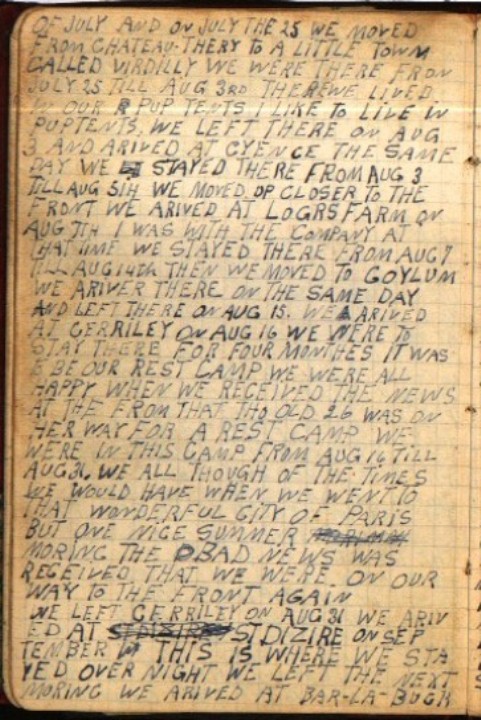 OF JULY AND ON JULY THE 25 WE MOVED
FROM CHATEAU-THERY TO A LITTLE TOWN
CALLED VIRDILLY WE WERE THERE FROM
JULY 25 TILL AUG 3RD THERE WE LIVED
IN OUR PUP TENTS I LIKE TO LIVE IN
PUPTENTS, WE LEFT THERE ON AUG
3 AND ARIVED AT CYENCE THE SAME
DAY WE STAYED THERE FROM AUG 3
TILL AUG 5IH WE MOVED OP CLOSER TO THE
FRONT WE ARIVED AT LOGRS FARM ON
AUG 7TH I WAS WITH THE COMPANY AT
THAT TIME WE STAYED THERE FROM AUG 7
TILL AUG 14TH THEN WE MOVED TO GOYLUM
WE ARIVER THERE ON THE SAME DAY
AND LEFT THERE ON AUG 15. WE ARIVED
AT GERRILEY ON AUG 16 WE WERE TO
STAY THERE FOR FOUR MONTHES IT WAS
E BE OUR REST CAMP WE WERE ALL
HAPPY WHEN WE RECEIVED THE NEWS
AT THE FROM THAT THO OLD 26 WAS ON
HER WAY FOR A REST CAMP WE
WERE IN THIS CAMP FROM AUG 16 TILL
AUG 31, WE ALL THOUGH OF THE TIMES
WE WOULD HAVE WHEN WE WENT TO
THAT WONDERFUL CITY OF PARIS
BUT ONE NICE SUMMER
MORING THE BAD NEWS WAS
RECEIVED THAT WE WERE ON OUR
WAY TO THE FRONT AGAIN
WE LEFT GERRILEY ON AUG 31 WE ARIV
ED AT ST DIZIRE ON SEP
TEMBER THIS IS WHERE WE STA
YED OVER NIGHT WE LEFT THE NEXT
MORING WE ARIVED AT BAR-LA-BUCK